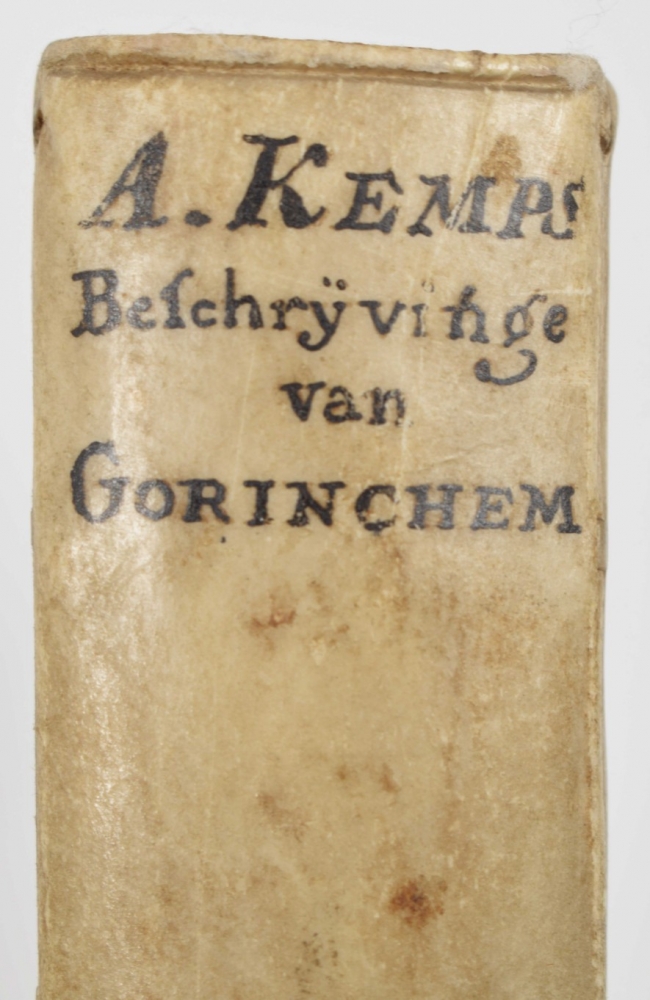 A. KEMPS
Beſchrÿvinge
van
GORINCHEM